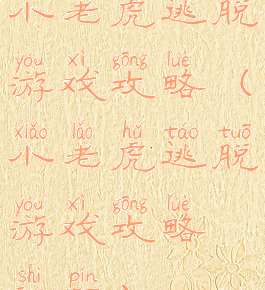 小老虎逃脱
yóu xì gōng lüè
游戏攻略（
xiǎo lǎo hǔ táo tuō
小老虎逃脱
yóu xì gōng lüè
游戏攻略
shì pín